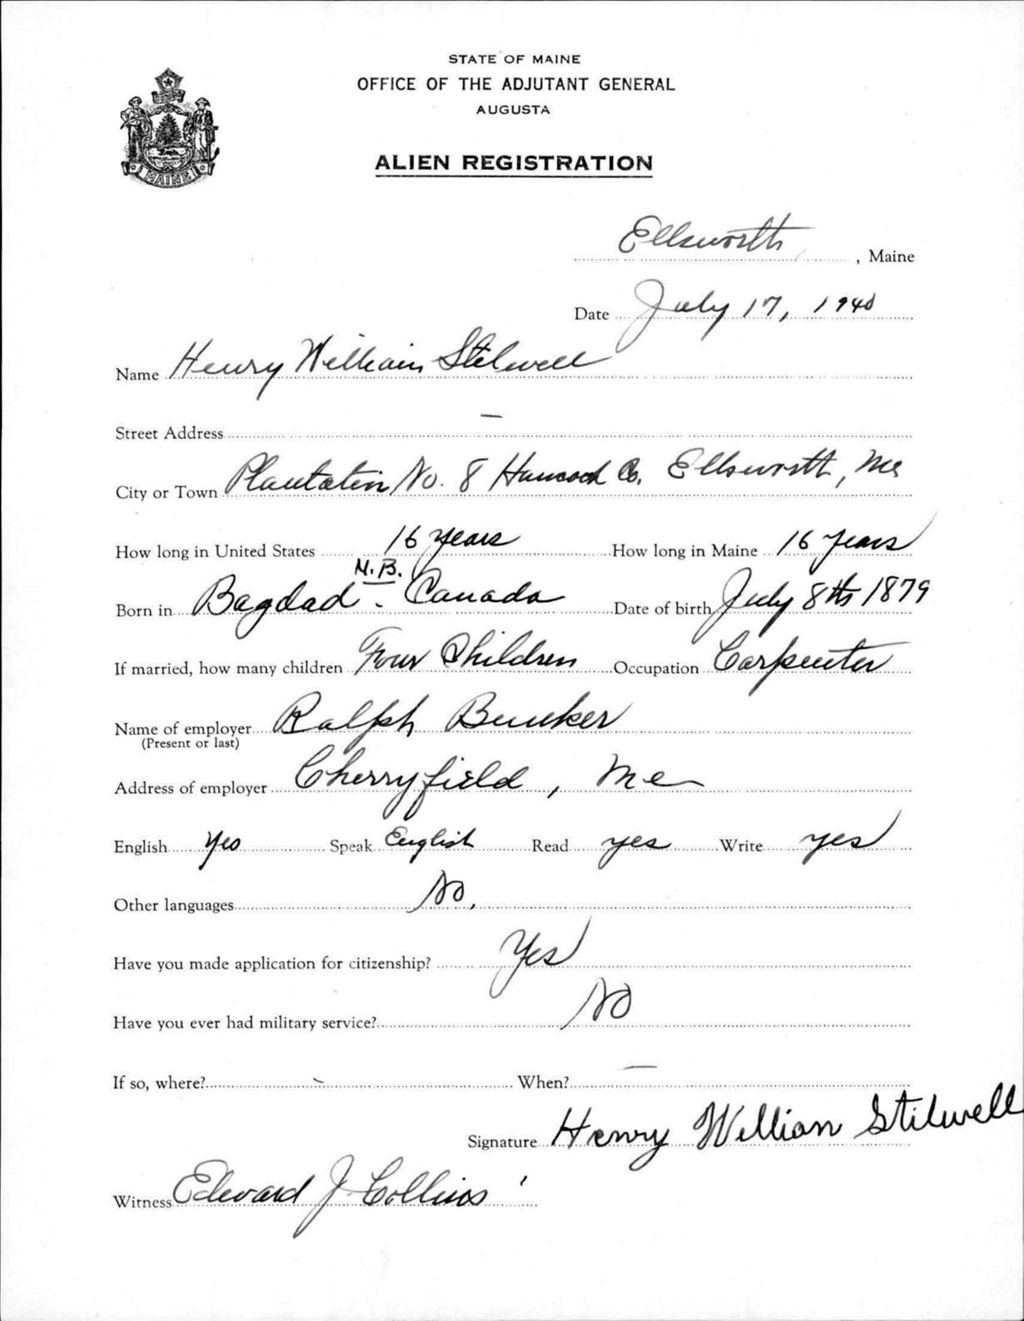 STATE OF MAINE
OFFICE OF THE ADJUTANT GENERAL
AUGUSTA
ALIEN REGISTRATION
MAINE
Ellsworth, Maine
Date July 17, 1940
Name Henry William Stilwell
Street Address —
City or Town Plantation No. 8 Hancock Co. Ellsworth, Me
How long in United States 16 years How long in Maine 16 years
Born in Bagdad N.B. Canada Date of birth July 8th 1879
If married, how many children Four Children Occupation Carpenter
Name of employer Ralph Bunker
(Present or last)
Address of employer Cherryfield, Me
English Yes Speak English Read yes Write yes
Other languages No,
Have you made application for citizenship? Yes
Have you ever had military service? No
If so, where? - When? —
Signature Henry William Stilwell
Witness Edward J Collins